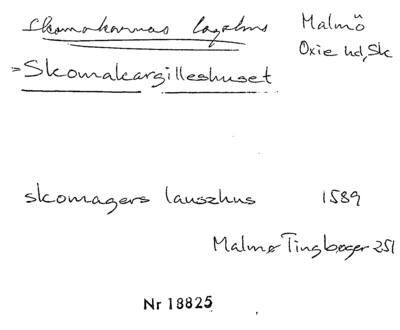 Skomakarnas lagshus
Malmö
Oxie hd, Sk
=Skomakargilleshuset
skomagers lauszhus 1589
Malmø Tingbøger 251
Nr 18825